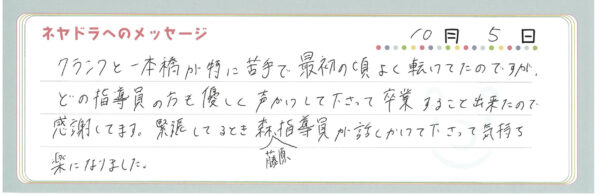 ネヤドラへのメッセージ
10月 5日
クランクと一本橋が特に苦手で最初の頃よく転けてたのですが、
どの指導員の方も優しく声かけして下さって卒業すること出来たので
感謝してます。緊張してるとき森指導員が話しかけて下さって気持ち
藤原
楽になりました。